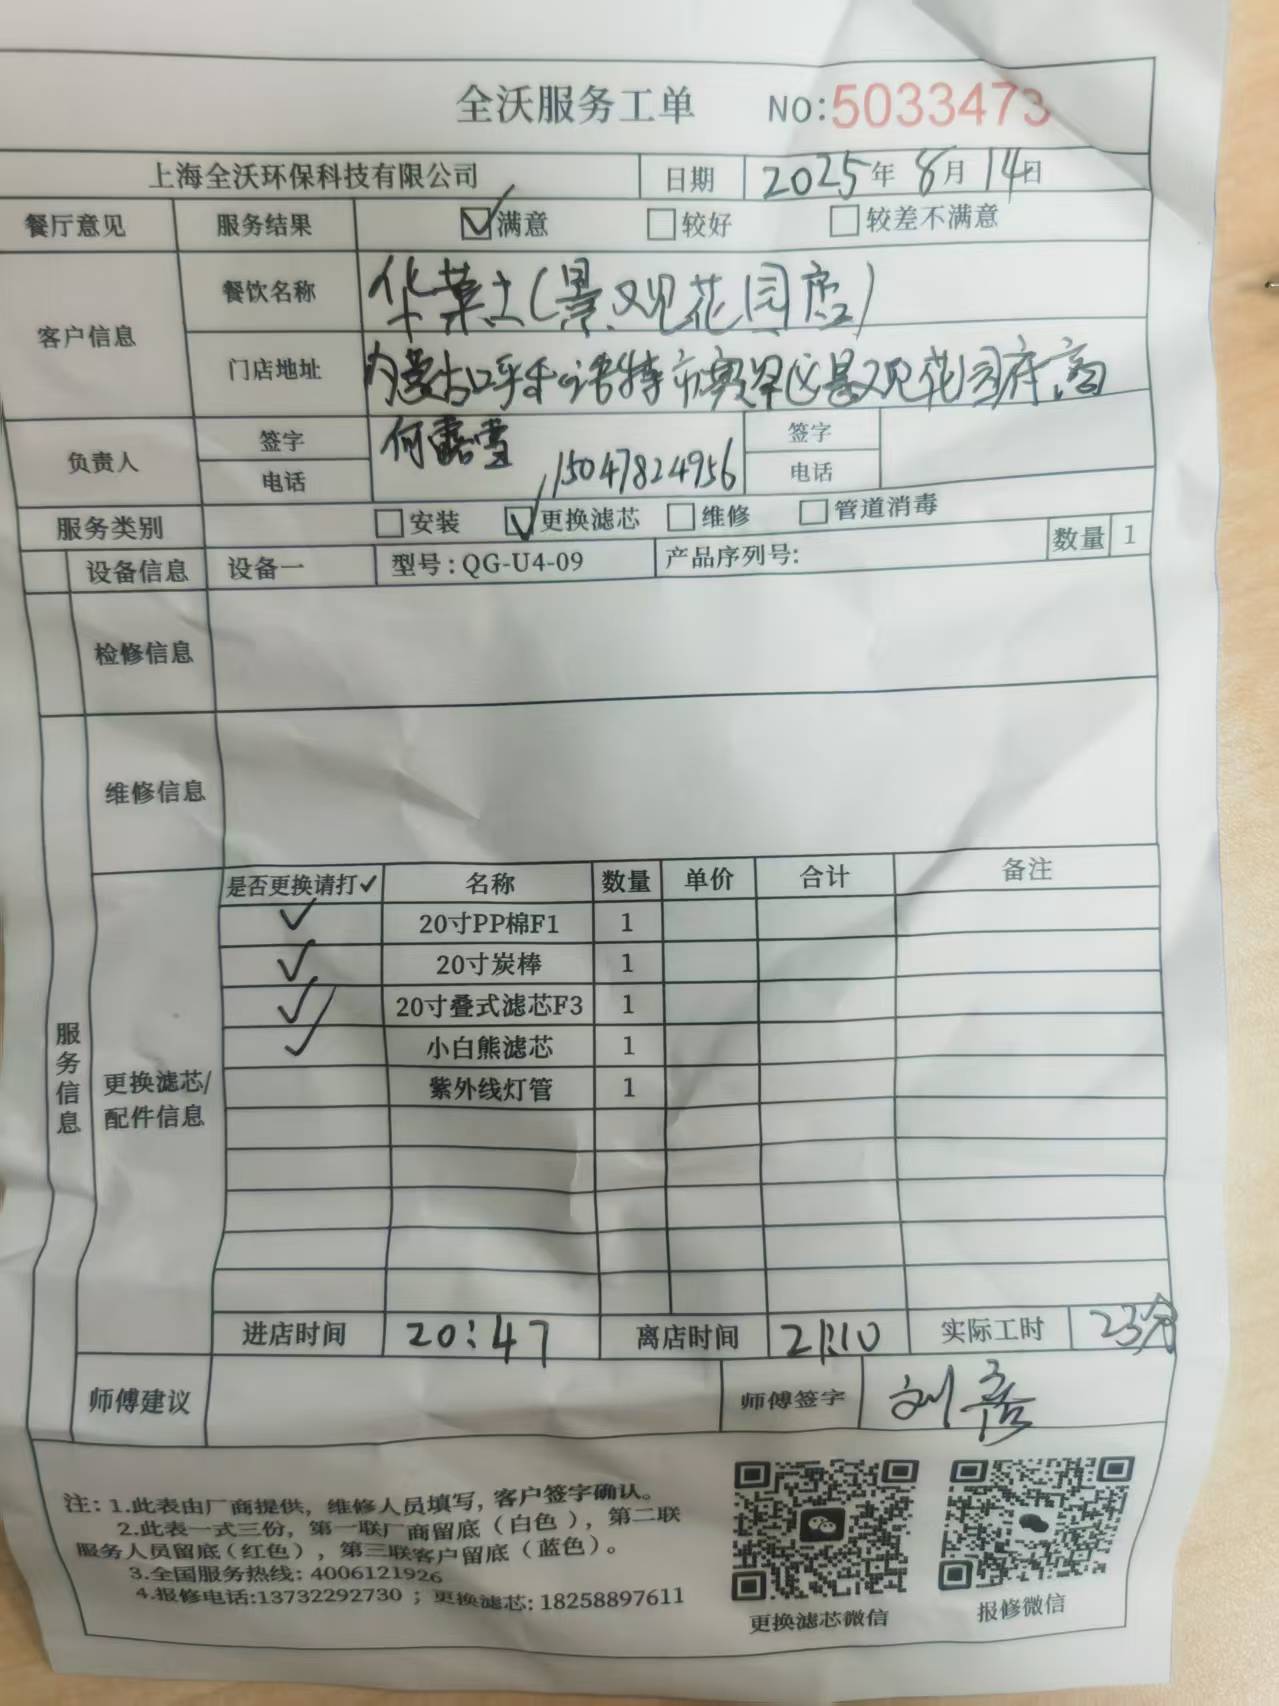 全沃服务工单 NO:5033473
上海全沃环保科技有限公司 日期 2025年8月14日
餐厅意见 服务结果 ☑满意 ☐较好 ☐较差不满意
客户信息 餐饮名称 华莱士(景观花园店)
门店地址 内蒙古呼和浩特市赛罕区景观花园府商
负责人 签字 何露雪 签字
电话 15047824956 电话
服务类别 ☐安装 ☑更换滤芯 ☐维修 ☐管道消毒
设备信息 设备一 型号:QG-U4-09 产品序列号: 数量 1
检修信息
维修信息
服务信息
更换滤芯/
配件信息
是否更换请打✓ 名称 数量 单价 合计 备注
✓ 20寸PP棉F1 1
✓ 20寸炭棒 1
✓ 20寸叠式滤芯F3 1
✓ 小白熊滤芯 1
紫外线灯管 1
进店时间 20:47 离店时间 21:10 实际工时 23分
师傅建议 师傅签字 刘
注:1.此表由厂商提供,维修人员填写,客户签字确认。
2.此表一式三份,第一联厂商留底(白色),第二联
服务人员留底(红色),第三联客户留底(蓝色)。
3.全国服务热线:4006121926
4.报修电话:13732292730;更换滤芯:18258897611
更换滤芯微信 报修微信